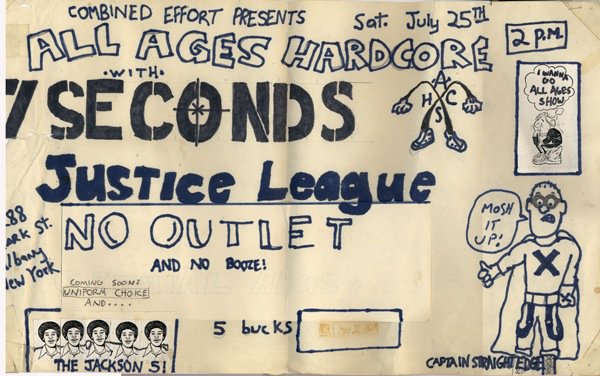 COMBINED EFFORT PRESENTS
SAT. JULY 25TH
ALL AGES HARDCORE
2 P.M.
·WITH·
7 SECONDS
A
H C
S
I WANNA
DO
ALL AGES
SHOW
JUSTICE LEAGUE
NO OUTLET
AND NO BOOZE!
88
ark St.
Albany
New York
MOSH
IT
UP!
X
COMING SOON:
UNIFORM CHOICE
AND....
5 bucks
THE JACKSON 5!
CAPTAIN STRAIGHT EDGE!